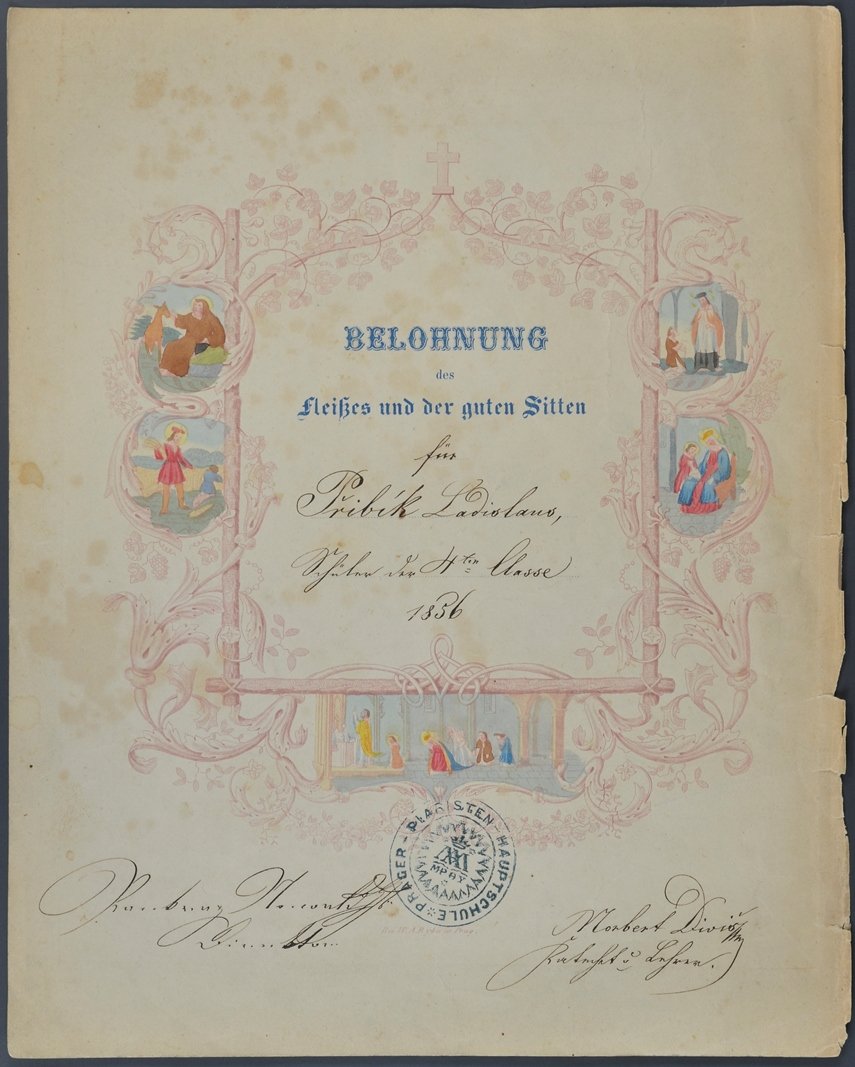 BELOHNUNG
des
Fleißes und der guten Sitten
für
Přibík Ladislaus,
Schüler der 4ten Classe
1856
PRAGER-PIARISTEN-HAUPTSCHULE
Direktor
Norbert Diviš
Katechet u. Lehrer.